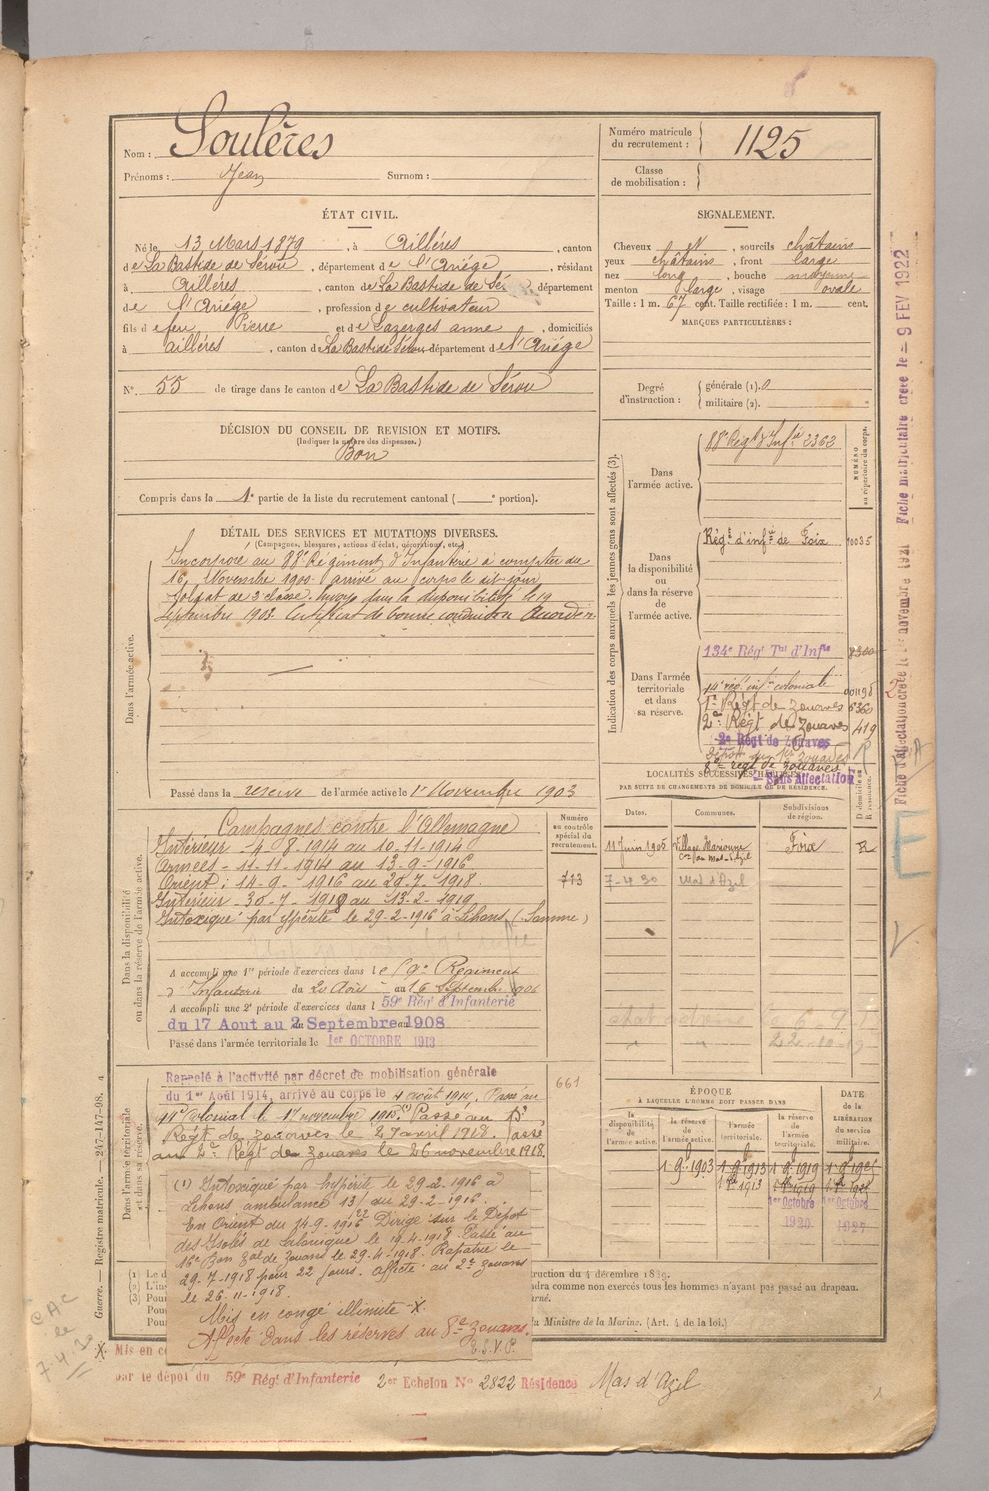 Nom : Soulères
Prénoms : Jean Surnom :
Numéro matricule du recrutement : 1125
Classe de mobilisation :
ÉTAT CIVIL.
Né le 13 Mars 1879, à Aillères, canton
de La Bastide de Sérou, département de l'Ariége, résidant
à Aillères, canton de La Bastide de Sérou département
de l'Ariége, profession de cultivateur
fils de feu Pierre et de Lazerges anne, domiciliés
à aillères, canton de La Bastide Sérou département de l'Ariége
N° 55 de tirage dans le canton de La Bastide de Sérou
SIGNALEMENT.
Cheveux et, sourcils châtains
yeux châtains, front large
nez long, bouche moyenne
menton large, visage ovale
Taille : 1 m. 67 cent. Taille rectifiée : 1 m. cent.
MARQUES PARTICULIÈRES :
Degré d'instruction : générale (1). 0
militaire (2).
DÉCISION DU CONSEIL DE REVISION ET MOTIFS.
(Indiquer la nature des dispenses.)
Bon
Compris dans la 1e partie de la liste du recrutement cantonal ( e portion).
DÉTAIL DES SERVICES ET MUTATIONS DIVERSES.
(Campagnes, blessures, actions d'éclat, décorations, etc.)
Dans l'armée active.
Incorporé au 88e Régiment d'Infanterie à compter du
16 Novembre 1900 arrivé au corps le dit jour
soldat de 2e classe. Envoyé dans la disponibilité le 19
septembre 1903. Certificat de bonne conduite Accordé
Passé dans la réserve de l'armée active le 1er Novembre 1903
Indication des corps auxquels les jeunes gens sont affectés (3).
NUMÉRO au répertoire du corps.
Dans l'armée active.
88e Régt d'Infie 2362
Dans la disponibilité ou dans la réserve de l'armée active.
Régt d'infie de Foix 10035
Dans l'armée territoriale et dans sa réserve.
134e Régt Tal d'Infie 8300
14e rég. infie coloniale 001198
1er Régt de zouaves 6360
2e Régt de Zouaves 419
2e Régt de Zouaves
8e régt de zouaves
Sans Affectation
LOCALITÉS SUCCESSIVES HABITÉES
PAR SUITE DE CHANGEMENTS DE DOMICILE OU DE RÉSIDENCE.
Dates. Communes. Subdivisions de région. D domicile ou R résidence.
11 juin 1905 Village Marionne Cne du Mas-d'Azil Foix R
7-4 30 Mas d'Azil
Dans la disponibilité ou dans la réserve de l'armée active.
Numéro au contrôle spécial du recrutement.
713
Campagnes contre l'Allemagne
Intérieur - 4-8-1914 au 10-11-1914
Armées - 11-11-1914 au 13-9-1916
Orient : 14-9-1916 au 29-7-1918.
Intérieur - 30-7-1918 au 13-2-1919
Intoxiqué par ypérite le 29-2-1916 à Lihons (Somme)
A accompli une 1re période d'exercices dans le 59e Régiment
d'Infanterie du 20 Août au 16 Septembre 1906
A accompli une 2e période d'exercices dans l 59e Régt d'Infanterie
du 17 Aout au 2 Septembre 1908
Passé dans l'armée territoriale le 1er OCTOBRE 1913
Dans l'armée territoriale et dans sa réserve.
661
Rappelé à l'activité par décret de mobilisation générale
du 1er Août 1914, arrivé au corps le 4 août 1914, Passé au
44e Colonial le 1er novembre 1915 (1) Passé au 1er
Régt de zouaves le 29 avril 1918. Passé
au 2e Régt de zouaves le 26 novembre 1918.
(1) Intoxiqué par hypérite le 29-2-1916 à
Lihons ambulance 13/ du 29-2-1916.
En Orient du 14-9-1916 Dirigé sur le Dépôt
des Isolés de Salonique le 19-4-1918 Passé au
16e Bon Zal de Zouaves le 29-4-1918. Rapatrié le
29-7-1918 pour 22 jours. affecté au 2e zouaves
le 26-11-1918.
Mis en congé illimité X.
Affecté dans les réserves au 8e Zouaves.
T.S.V.P.
ÉPOQUE
À LAQUELLE L'HOMME DOIT PASSER DANS
la disponibilité de l'armée active. la réserve de l'armée active. l'armée territoriale. la réserve de l'armée territoriale. DATE de la LIBÉRATION du service militaire.
1 9bre 1903 1 9bre 1913 1 9bre 1919
1er Octobre 1920
(1) Le d
(2) L'ins
(3) Pour
Pour
Pour
ruction du 4 décembre 1889.
dra comme non exercés tous les hommes n'ayant pas passé au drapeau.
rné.
du Ministre de la Marine. (Art. 4 de la loi.)
X. Mis en co
par le dépôt du 59e Régt d'Infanterie 2er Echelon N° 2822 Résidence Mas d'Azil
Guerre. — Registre matricule. — 247-147-98.
CAC
le
7.4.30
Fiche d'affectation créée le novembre 1921 Fiche matriculaire créée le 9 FEV 1922